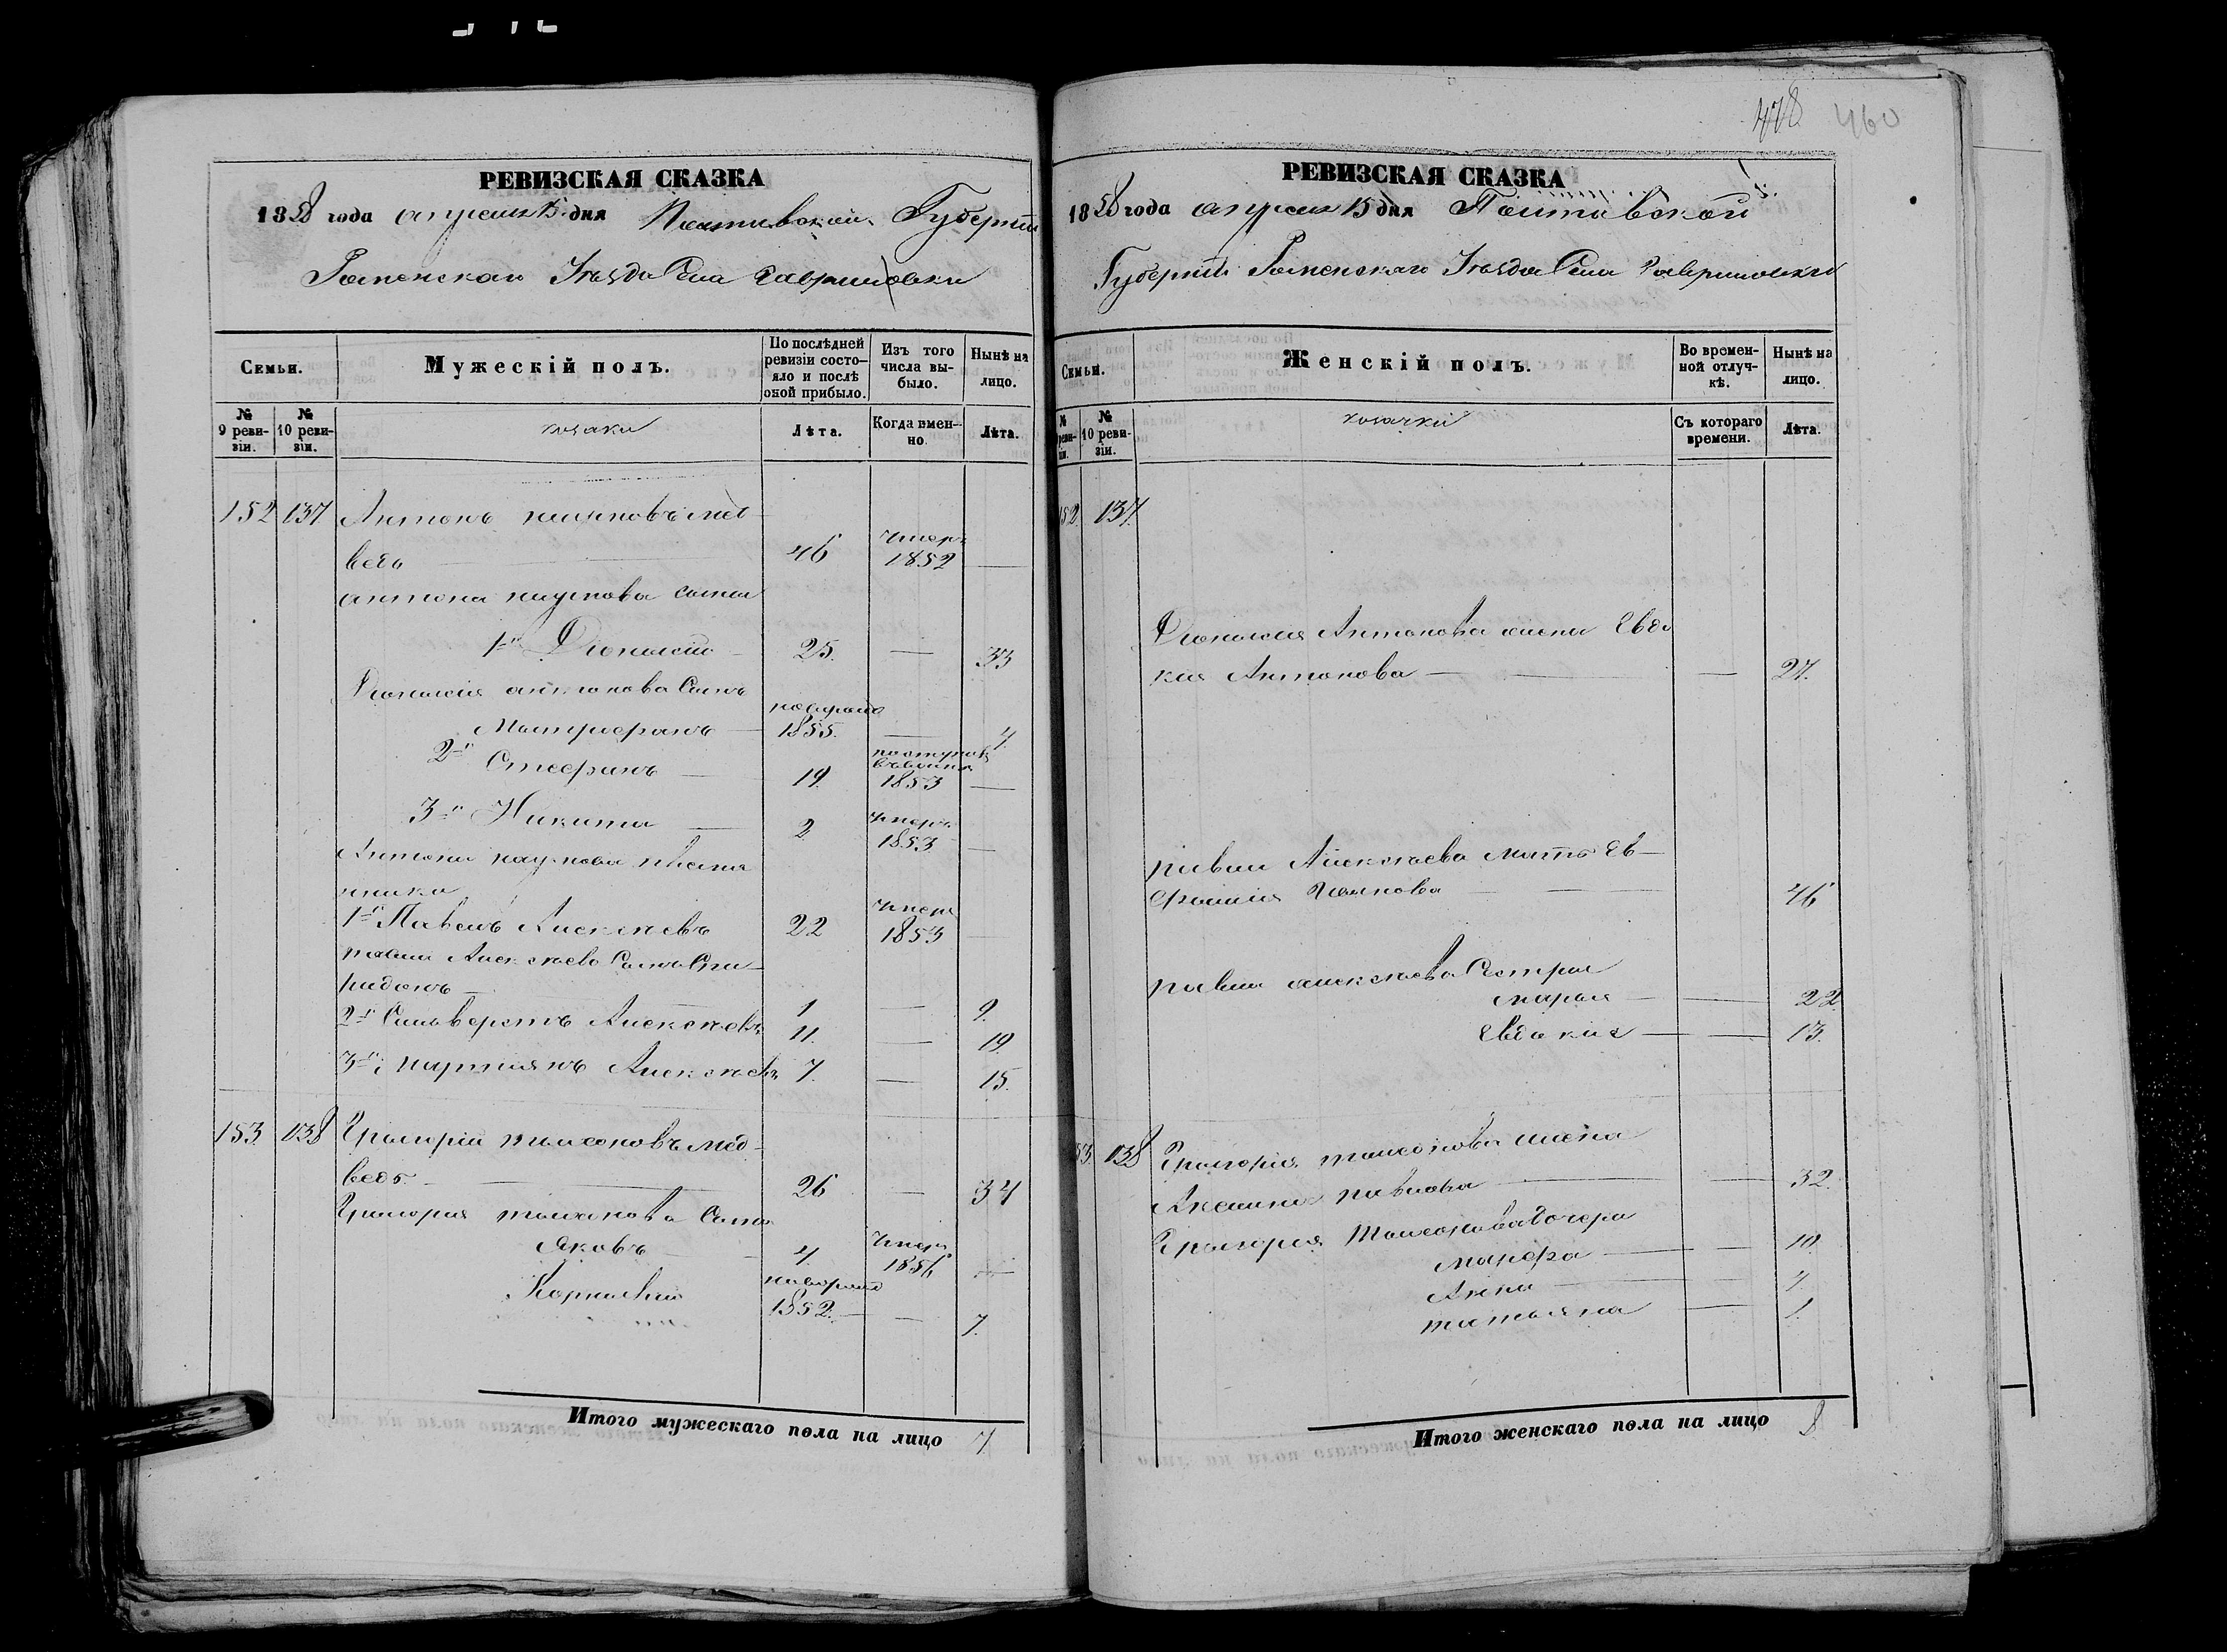 478 460
РЕВИЗСКАЯ СКАЗКА
1858 года апреля 15 дня Полтавской Губерніи
Роменскаго Уѣзда Села Гавриловки
Семьи.
Мужескій полъ.
По послѣдней ревизіи состо-
яло и послѣ
оной прибыло.
Изъ того
числа вы-
было.
Нынѣ на
лицо.
№
9 реви-
зіи.
№
10 реви-
зіи.
козаки
Лѣта.
Когда имен-
но.
Лѣта.
152 137 Антонъ Наумовъ Мед-
ведь 46 умеръ 1852
Антона Наумова сыны
1й Дионисій 25. 33
Дионисія Антонова Сынъ
Митрофанъ 1855.
2й Стефанъ 19. 1853
3й Никита 2 умеръ 1853
Антона Наумова племя-
нники
1й Павелъ Алексѣевъ 22 умеръ 1853
Павла Алексѣева Сынъ Спи-
ридонъ 1 9.
2й Сильверстъ Алексѣевъ 11. 19.
3й Алексѣевъ 7. 15.
153. 138 Григорій Мед-
ведь. 26 34
Григорія Сынъ
Яковъ 4. умеръ 1856
Корнилій 1852. 7.
Итого мужескаго пола на лицо 7.
РЕВИЗСКАЯ СКАЗКА
1858 года апреля 15 дня Полтавской
Губерніи Роменскаго Уѣзда Села Гавриловки
Семьи.
Женскій полъ.
Во времен-
ной отлуч-
кѣ.
Нынѣ на
лицо.
№
10 реви-
зіи.
козачки
Съ котораго
времени.
Лѣта.
152. 137.
Дионисія Антонова жена Евдо
кия Антонова 27.
Павла Алексѣева мать Ев-
фимия 46
Павла Алексѣева Сестры
Марья 22
Евдокия 13.
153. 138 Григорія жена
Аксинья Павлова 32.
Григорія дочери
10
Анна 4.
Татьяна 1.
Итого женскаго пола на лицо 8